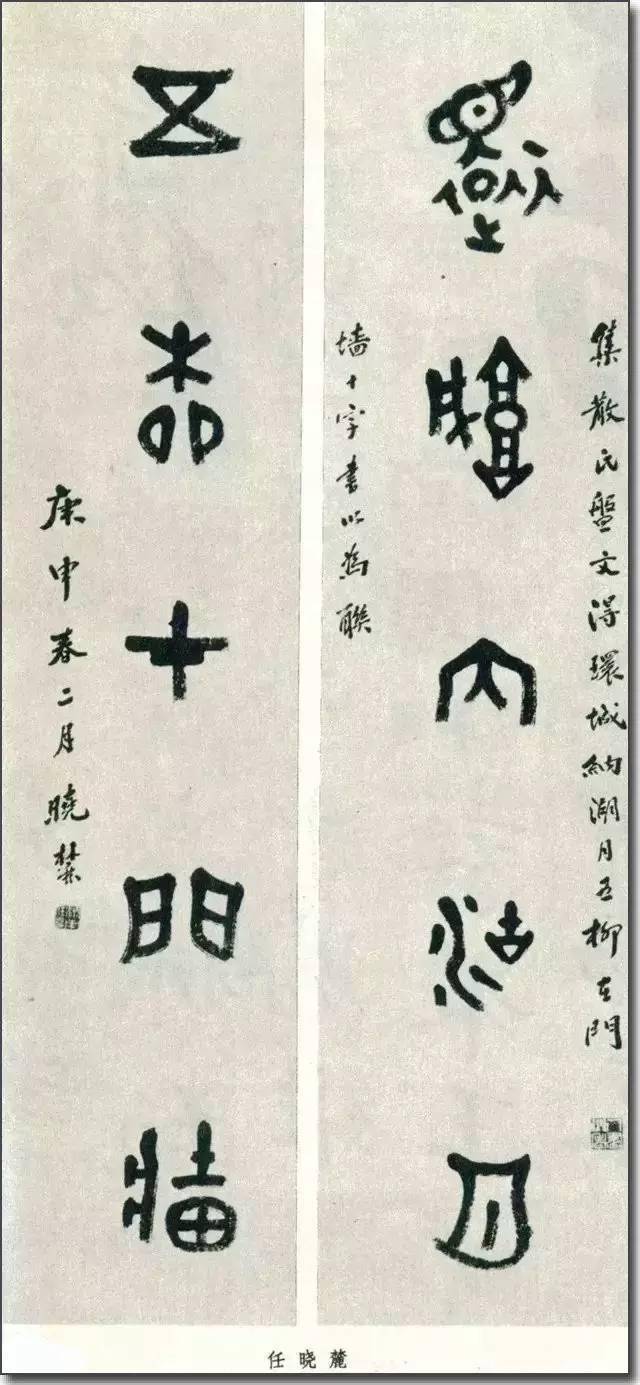 環城納湖月
集散氏盤文得環城納湖月五柳在門
墙十字書以為聯
五柳在門墙
庚申春二月曉麓
任晓麓